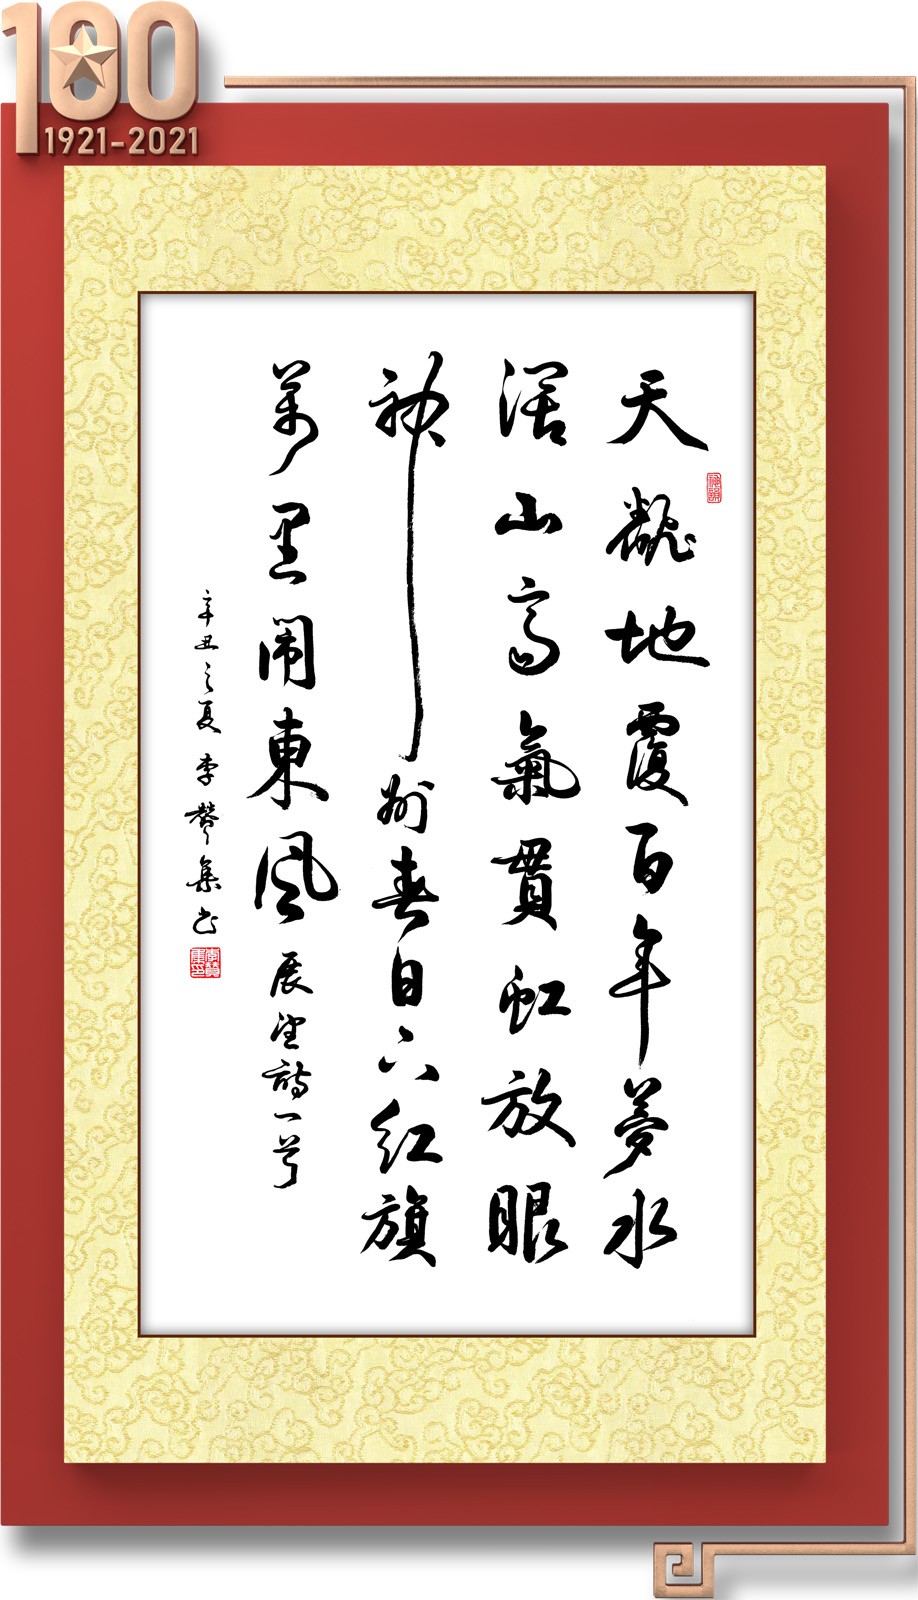 100
1921-2021
天翻地覆百年夢水
濶山高氣貫虹放眼
神州春日六红旗
萬里闹東風展望詩一首
辛丑之夏李赞集书